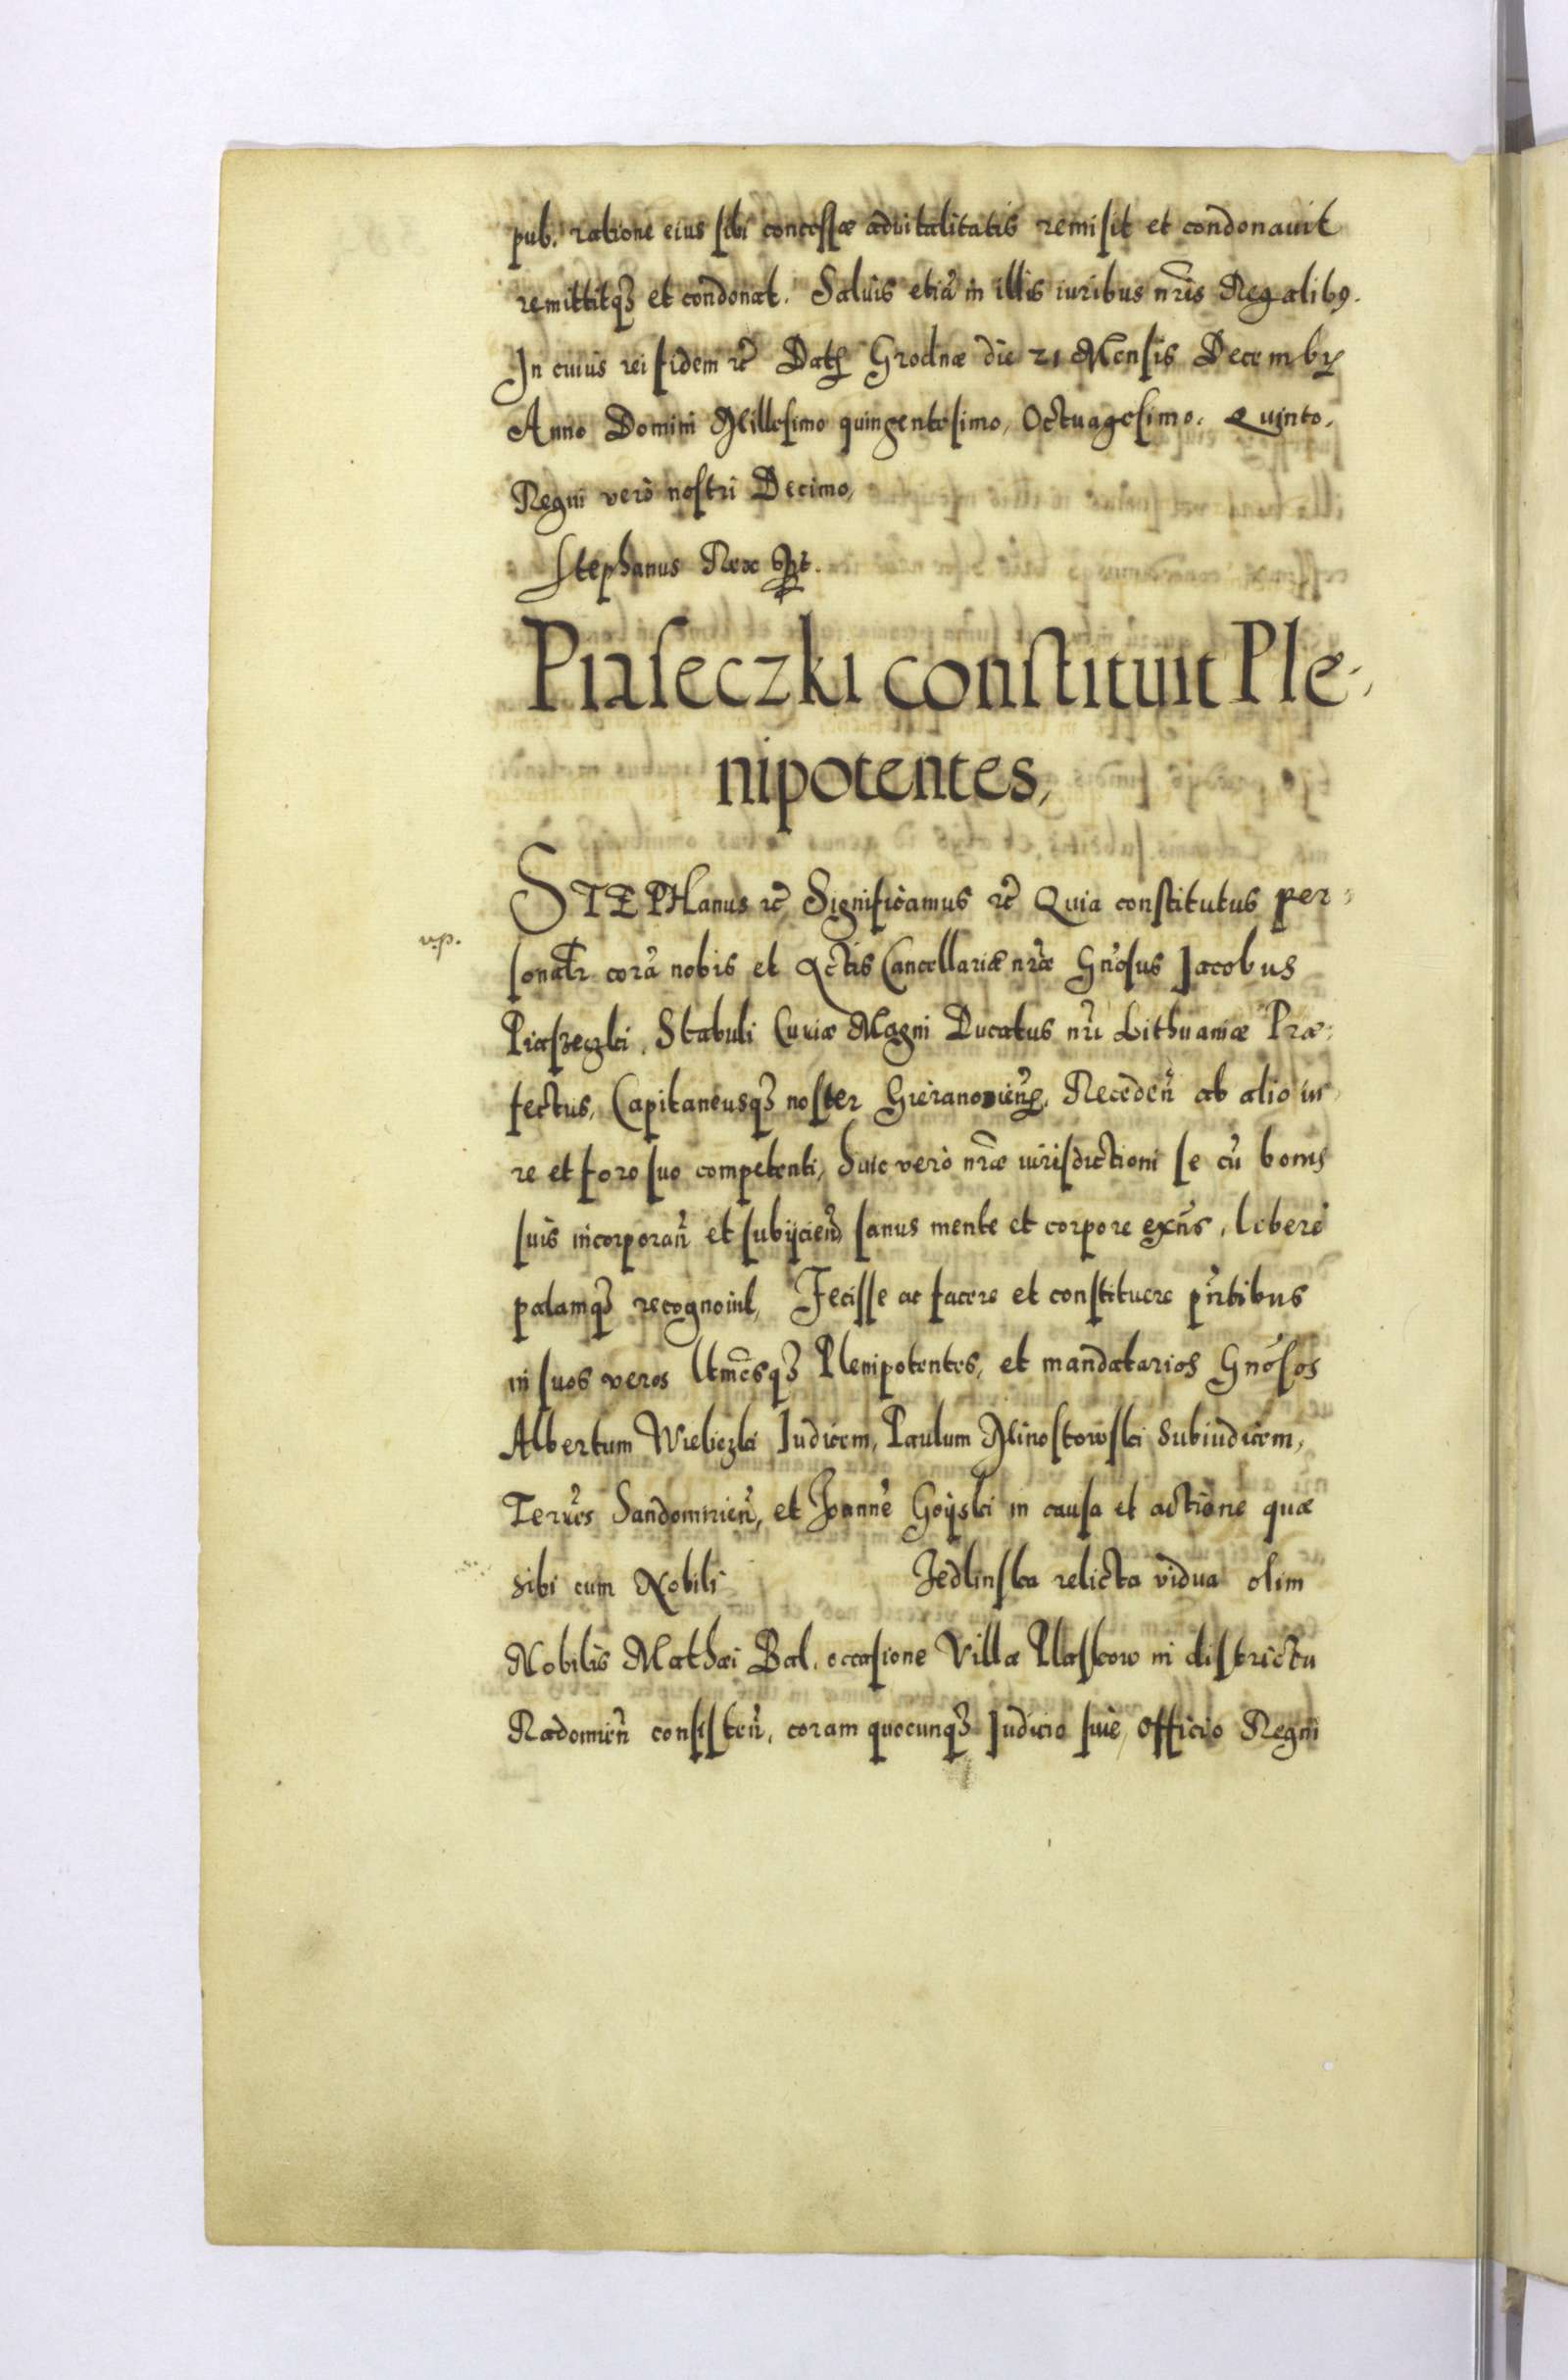 pub. ratione eius sibi concessæ aduitalitatis remisit et condonauit
remittitq₃ et condonat. Saluis etiā in illis iuribus nr̃is Regalibꝯ.
In cuius rei fidem ꝛc̃ Datꝭ Grodnæ die 21 Mensis Decembꝶ
Anno Domini Millesimo quingentesimo, Octuagesimo. Quinto.
Regni verò nostri Decimo,
Stephanus Rex sp̃t.
Piaſeczki conſtituit Ple-
nipotentes,
STEPHanus ꝛc̃ Significamus ꝛc̃ Quia constitutus per-
sonalr̃ corā nobis et Actis Cancellariæ nr̃æ Gn̄osus Jacobus
Piaseczki, Stabuli Curiæ Magni Ducatus nr̃i Lithuaniæ Præ-
fectus, Capitaneusq₃ noster Gieranonien̄ꝭ. Receden̄ ab alio iu-
re et foro suo competenti, huic verò nr̃æ iurisdictioni se cū bonis
suis incorporan̄ et subijcien̄, sanus mente et corpore exn̄s, liberè
palamq₃ recognouit, Fecisse ac facere et constituere pn̄tibus
in suos veros ltmc̃sq₃ Plenipotentes, et mandatarios Gn̄osos
Albertum Wiebiczki Judicem, Paulum Minostowski Subiudicem,
Terrēs Sandomirien̄, et Joannē Goÿski in causa et actione quæ
sibi cum Nobili Jedlinska relicta vidua olim
Nobilis Mathæi Bal, occasione Villæ Plaskow in districtu
Radomien̄ consisten̄, coram quocunq₃ Judicio siue, officio Regni